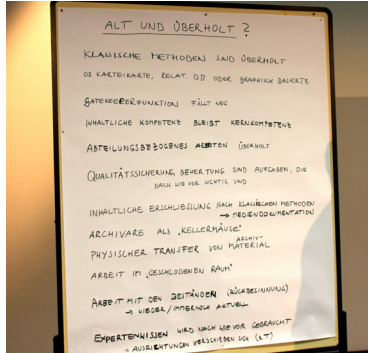 ALT UND ÜBERHOLT ?
KLASSISCHE METHODEN SIND ÜBERHOLT
OB KARTEIKARTE, RELAT. DB ODER GRAPHISCH BASIERTE
GATEKEEPERFUNKTION FÄLLT WEG
INHALTLICHE KOMPETENZ BLEIBT KERNKOMPETENZ
ABTEILUNGSBEZOGENES ARBEITEN ÜBERHOLT
QUALITÄTSSICHERUNG, BEWERTUNG SIND AUFGABEN, DIE
NACH WIE VOR WICHTIG UND
INHALTLICHE ERSCHLIESSUNG NACH KLASSISCHEN METHODEN
→ MEDIENDOKUMENTATION
ARCHIVARE ALS „KELLERMÄUSE"
ARCHIV-
PHYSISCHER TRANSFER VON MATERIAL
ARBEIT IM „GESCHLOSSENEN RAUM"
ARBEIT MIT DEN BESTÄNDEN (RÜCKBESINNUNG)
→ WIEDER/IMMERNOCH AKTUELL
EXPERTENWISSEN WIRD NACH WIE VOR GEBRAUCHT
→ AUSRICHTUNGEN VERSCHIEBEN SICH (z.T)